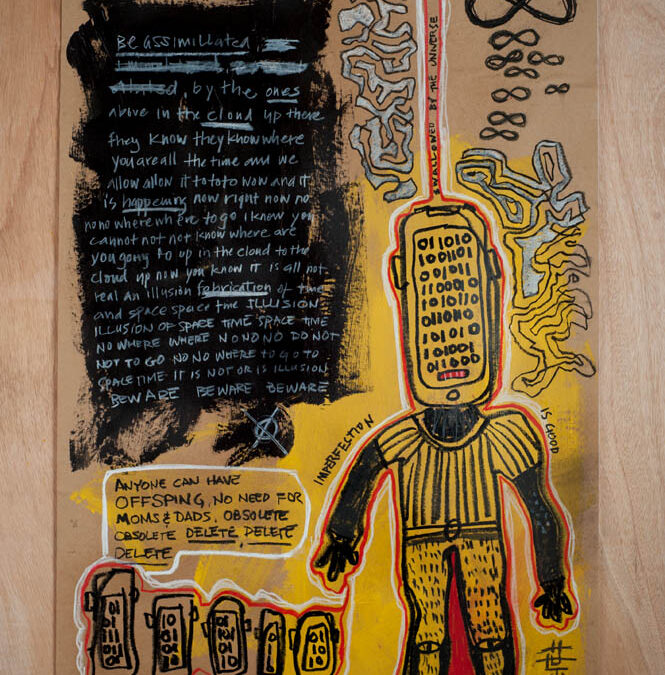 Be assimillated,
d, by the ones
above in the cloud up there
they know they know where
you are all the time and we
allow allow it to to to now and it
is happening now right now no
no no where where to go i know you
cannot not not know where are
you going to up in the cloud to the
cloud up now you know it is all not
real an illusion fabrication of time
and space space time ILLUSION
ILLUSION OF SPACE TIME SPACE TIME
NO WHERE WHERE NO NO NO DO NOT
NOT TO GO NO NO WHERE TO GO TO
SPACE TIME IT IS NOT OR IS ILLUSION
BEWARE BEWARE BEWARE
SWALLOWED BY THE UNIVERSE
011010
1001101
01011
110010
1010110
011010
101010
101001
011000
IMPERFECTION
IS GOOD
ANYONE CAN HAVE
OFFSPING, NO NEED FOR
MOMS & DADS, OBSOLETE
OBSOLETE DELETE, DELETE
DELETE